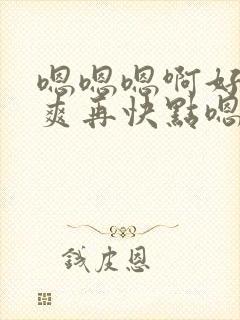 嗯嗯嗯啊好
爽再快點嗯
钱皮恩